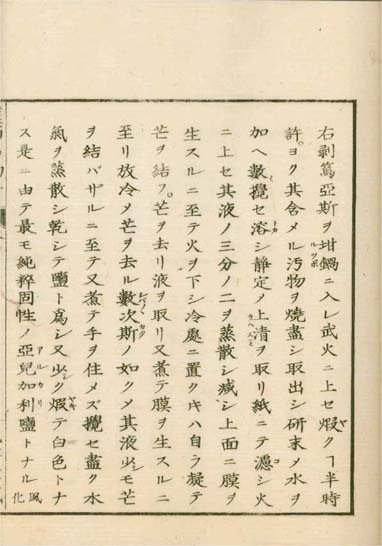 右剥篤亞斯ヲ坩鍋ニ入レ武火ニ上セ煆クヿ半時
許ヨク其含メル汚物ヲ燒盡シ取出シ研末メ水ヲ
加ヘ數攪セ溶シ靜定ノ上清ヲ取リ紙ニテ濾シ火
ニ上セ其液ノ三分ノ二ヲ蒸散シ減シ上面ニ膜ヲ
生スルニ至テ火ヲ下シ冷處ニ置クキハ自ラ凝テ
芒ヲ結フ。芒ヲ去リ液ヲ取リ又煮テ膜ヲ生スルニ
至リ放冷メ芒ヲ去ル數次斯ノ如クメ其液少シモ芒
ヲ結バザルニ至テ又煮テ手ヲ住メズ攪セ盡ク水
氣ヲ蒸散シ乾シテ鹽ト爲シ又少シク煆テ白色トナ
ス是ニ由テ最モ純粹固性ノ亞兒加利鹽トナル
風化